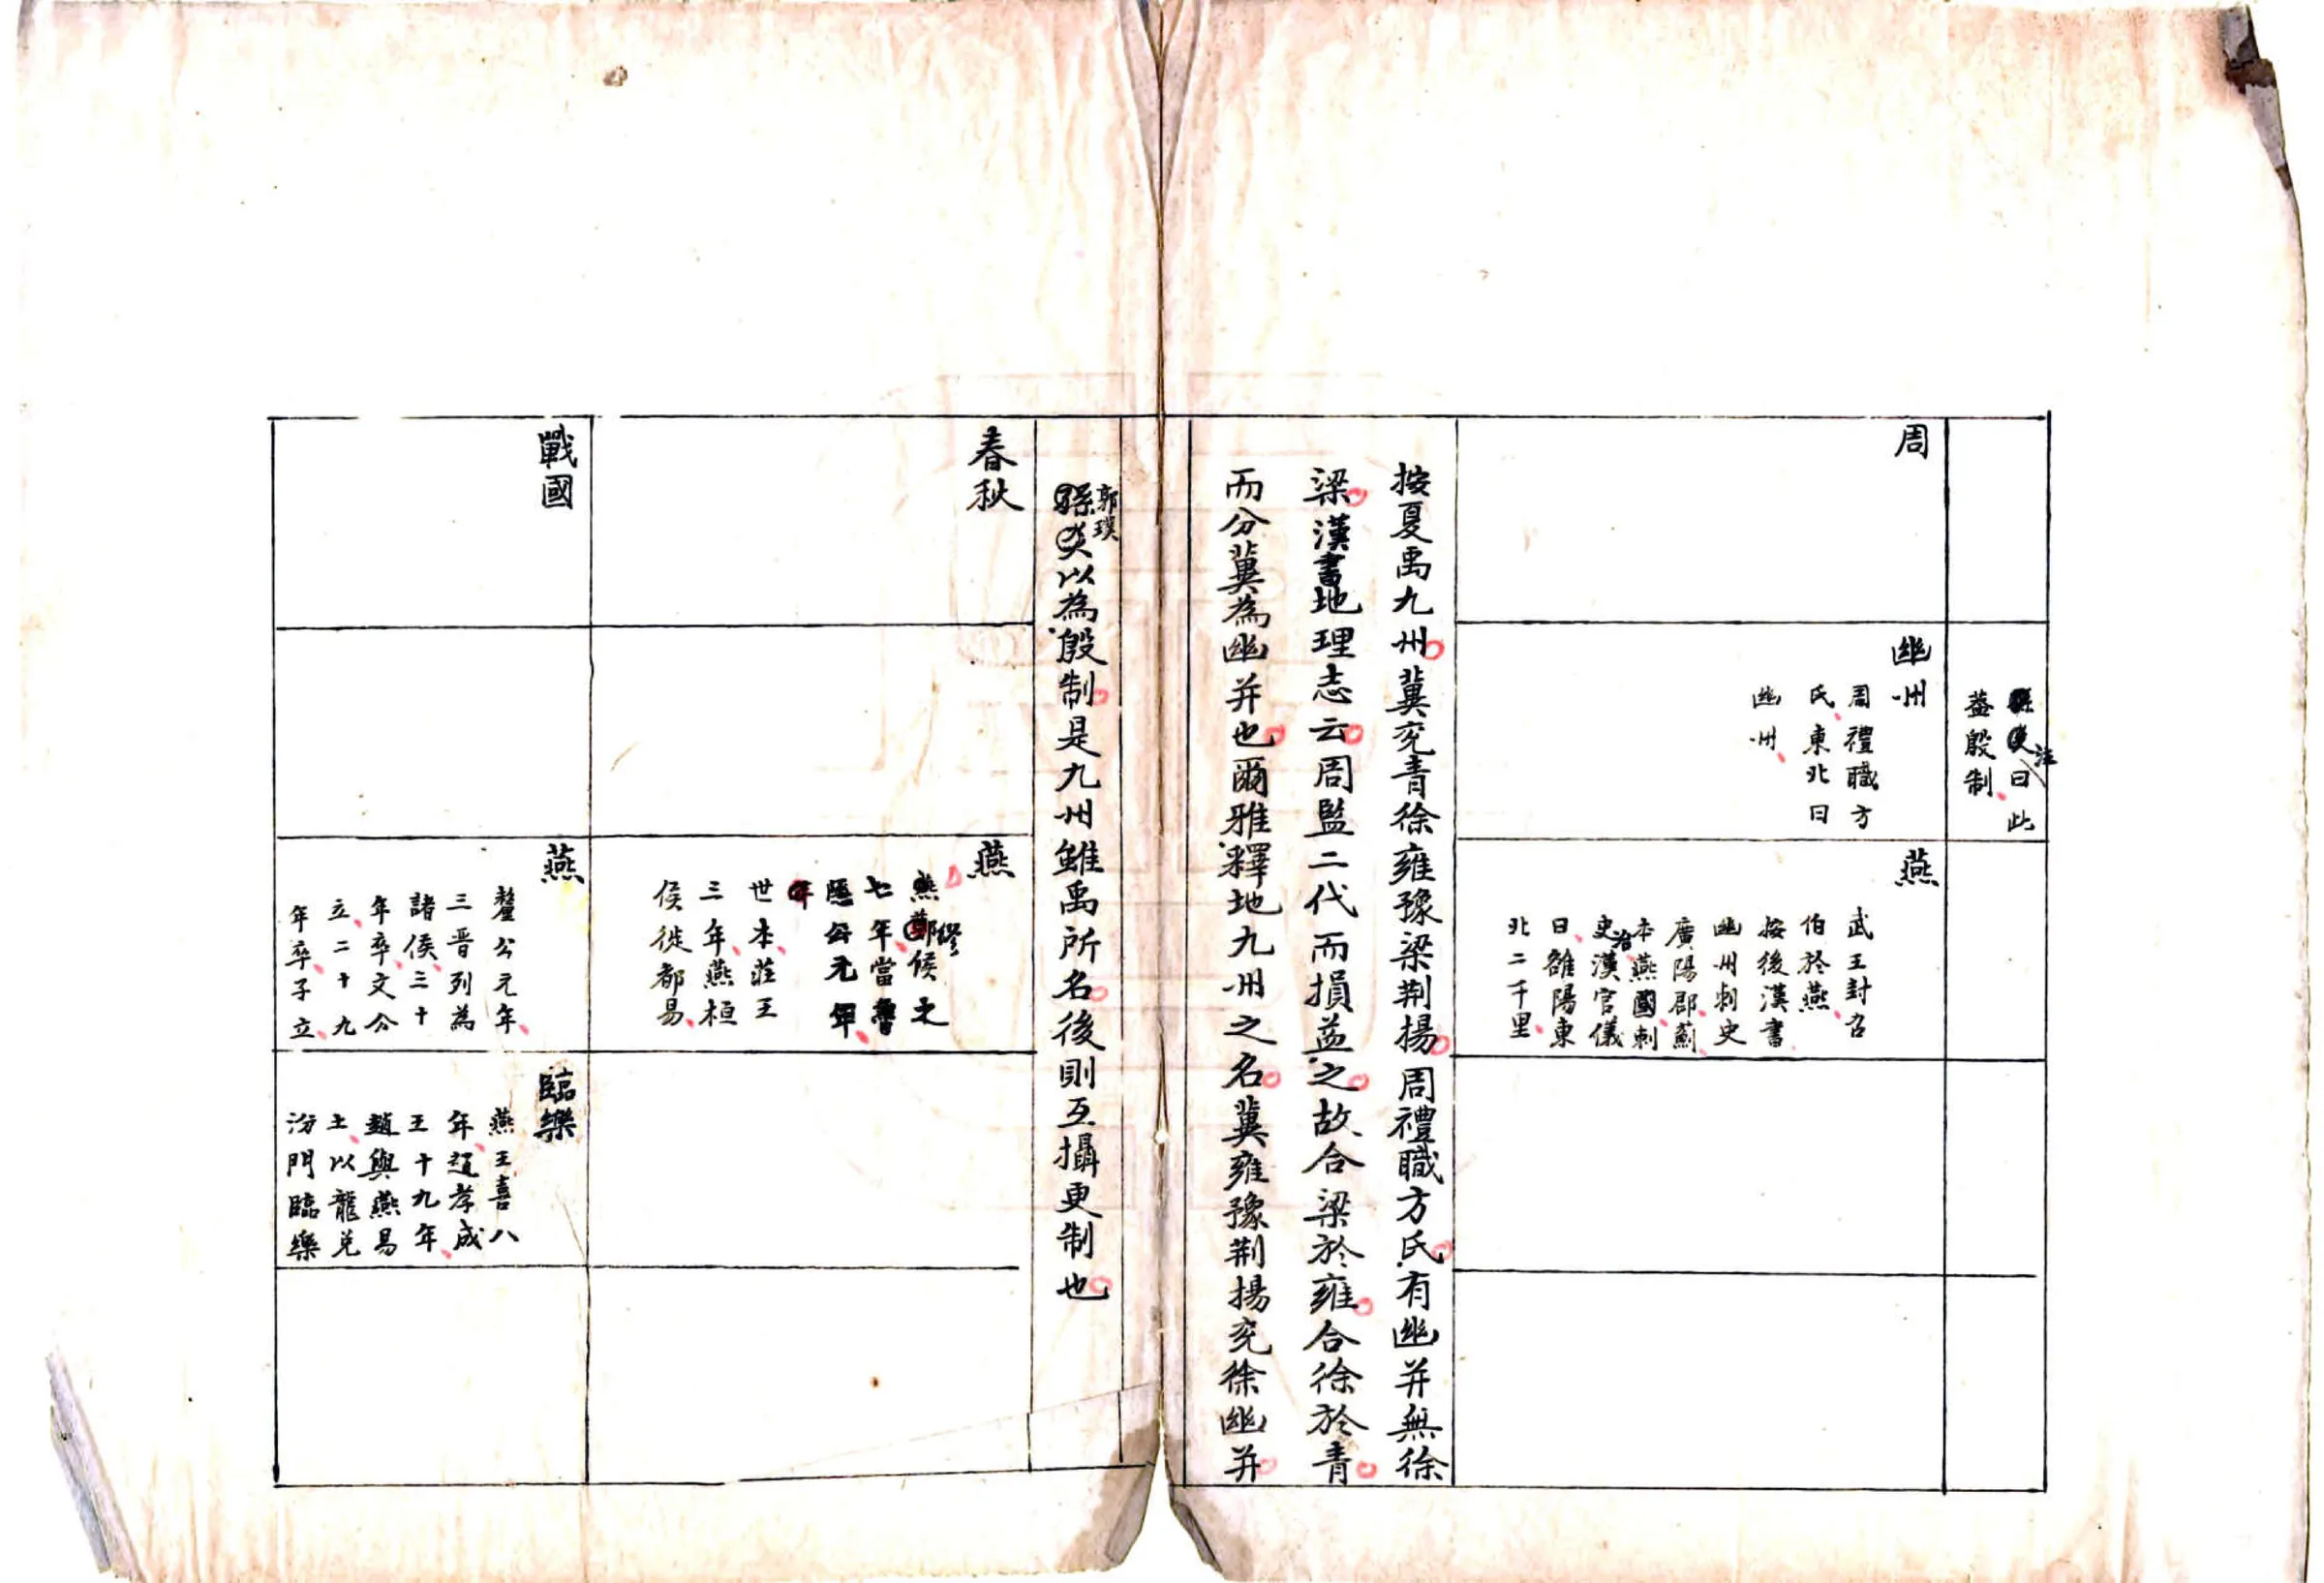 孫炎曰此
注
蓋殷制
周
幽州
周禮職方
氏東北曰
幽州
燕
武王封召
伯於燕
按後漢書
幽州刺史
廣陽郡薊
本燕國刺
史治漢官儀
曰雒陽東
北二千里
按夏禹九州冀兖青徐雍豫梁荆揚周禮職方氏有幽并無徐
梁漢書地理志云周監二代而損益之故合梁於雍合徐於青
而分冀為幽并也爾雅釋地九州之名冀雍豫荆揚兖徐幽并
郭璞
孫炎以為殷制是九州雖禹所名後則互攝更制也
春秋
燕
燕鄭侯之
繆
七年當魯
隱公元年
年
世本莊王
三年燕桓
侯徙都易
戰國
燕
釐公元年
三晋列為
諸侯三十
年卒文公
立二十九
年卒子立
臨樂
燕王喜八
年趙孝成
王十九年
趙與燕易
土以龍兑
汾門臨樂